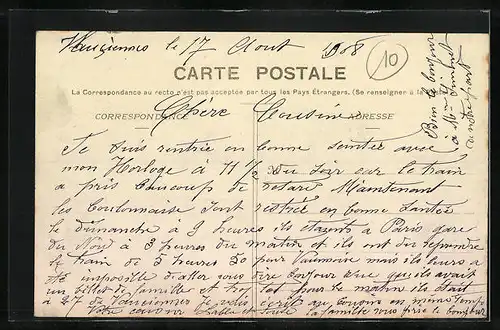 Vauciennes le 17 Aout 1908
10
CARTE POSTALE
La Correspondance au recto n'est pas acceptée par tous les Pays Étrangers. (Se renseigner à la
CORRESPONDANCE
ADRESSE
Chère Cousine
Je suis rentrée en bonne santée avec
mon Horloge à 11 ½ du soir car le train
a pris beaucoup de retard Maintenant
les Coulonnaise sont restrée en bonne santée
le dimanche à 9 heures ils étaients à Paris gare
du Nord à 3 heures du matin et ils ont du reprendre
le train de 5 heures 50 pour Vaumoise mais ils leurs a
été impossible d'aller vous dire bonjour vue qu'ils avait
un billet de famille et
à 27 de Vauciennes je vais écrit au cousin en même temps
Votre cousin et toute la famille vous bonjour
Bien le bonjour
à Mme